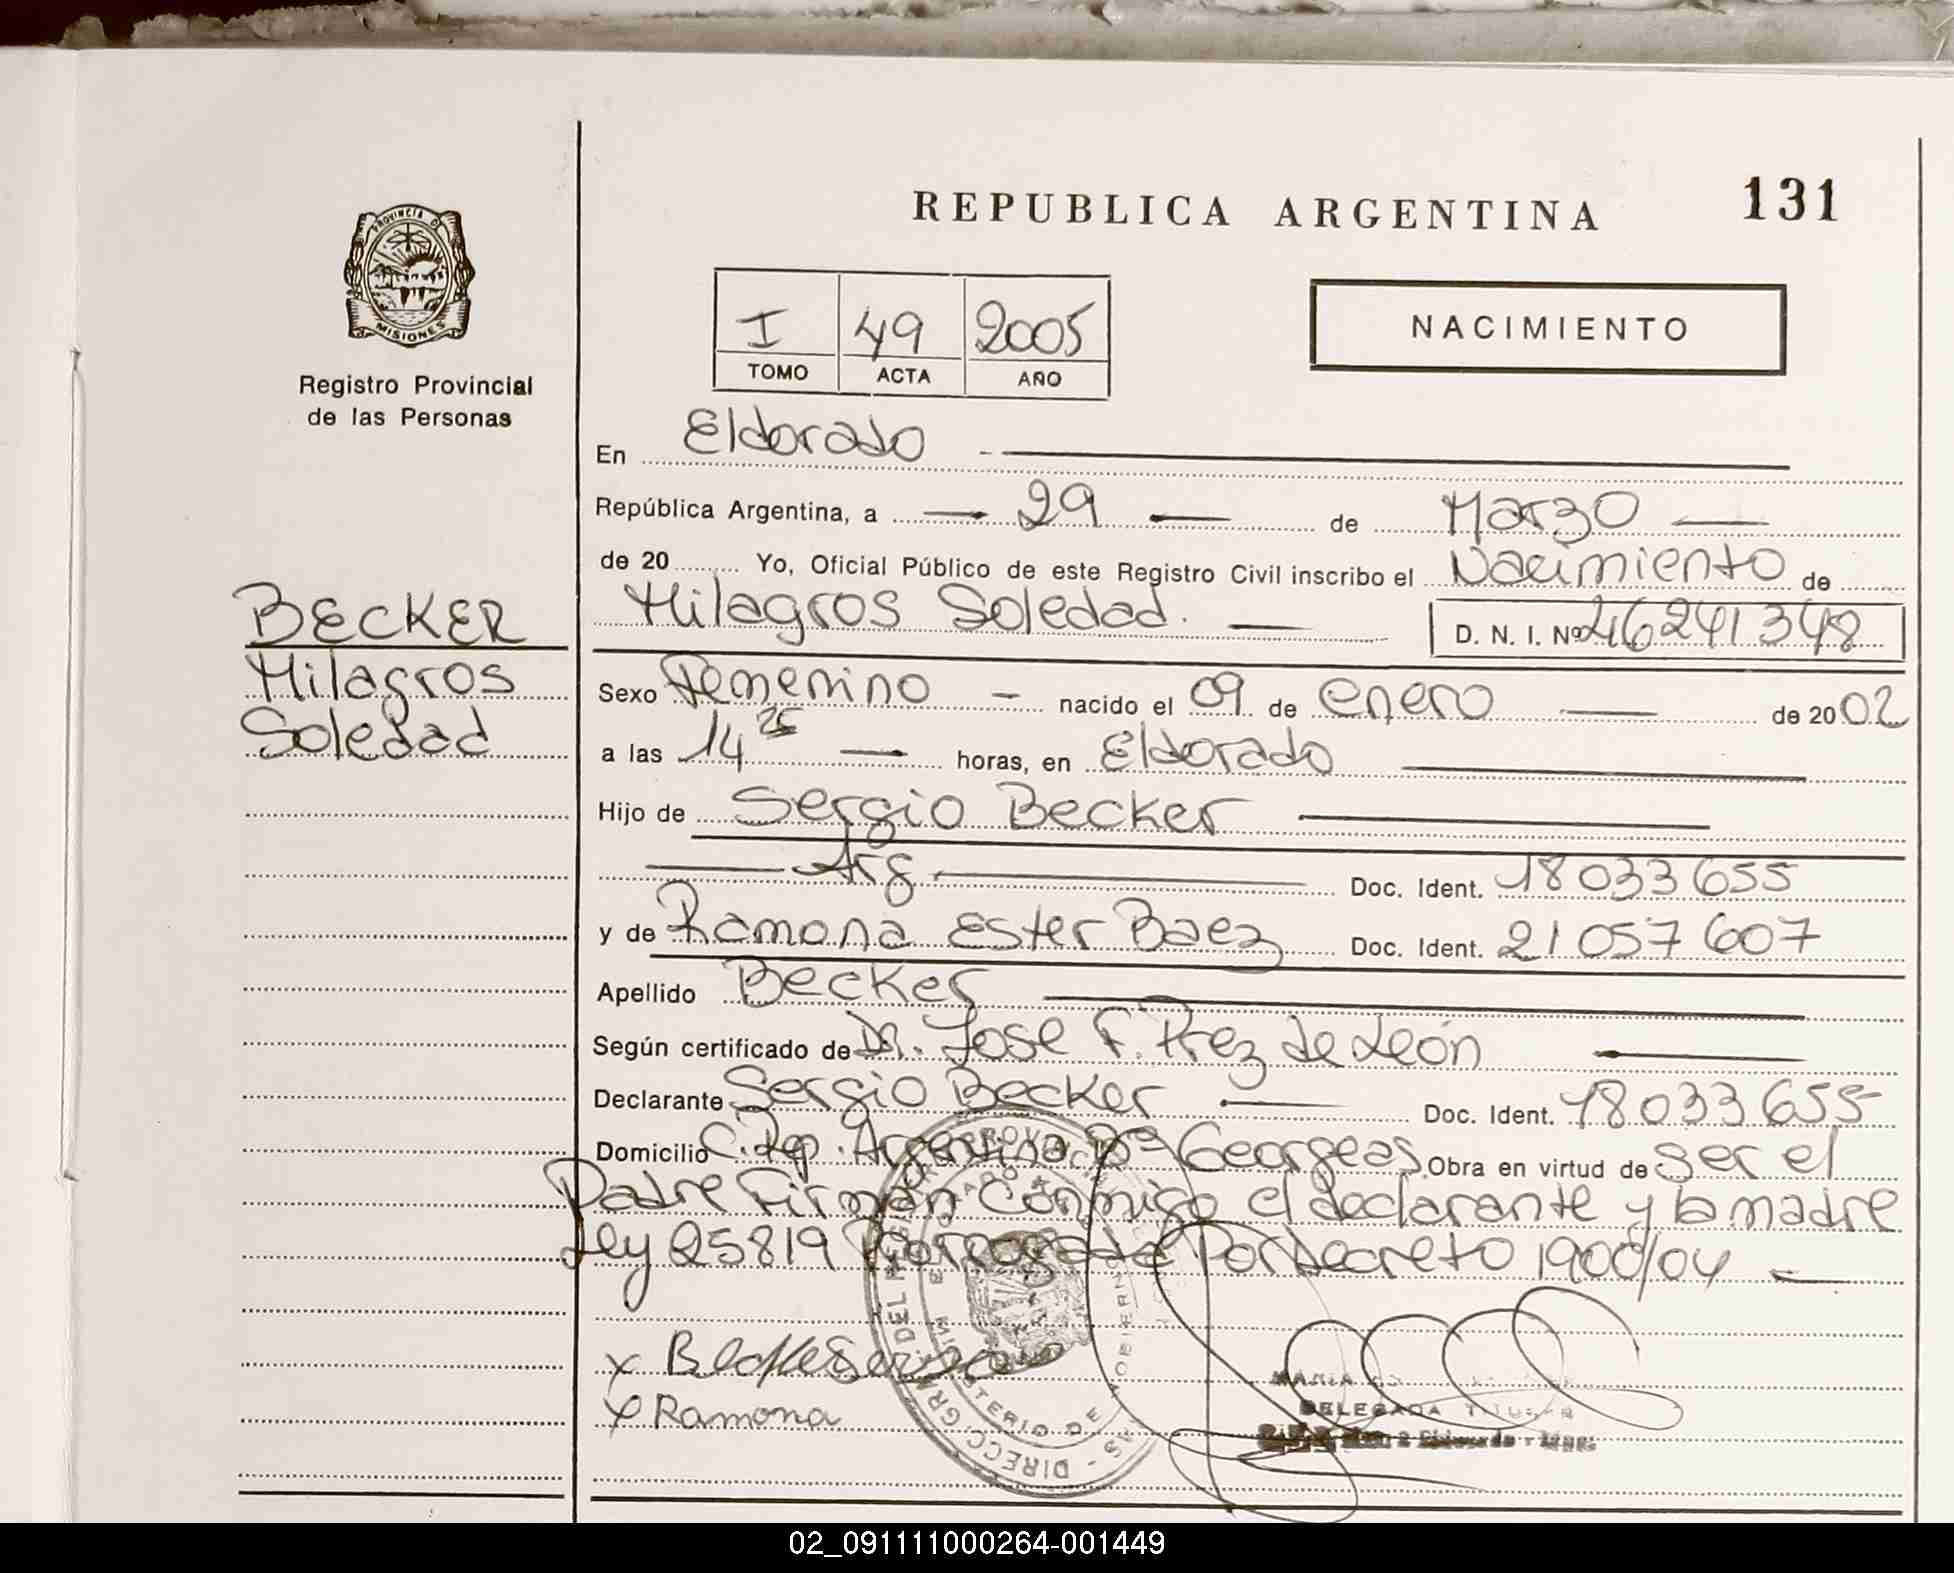 REPUBLICA ARGENTINA
131
PROVINCIA DE
MISIONES
Registro Provincial
de las Personas
I 49 2005
TOMO ACTA AÑO
NACIMIENTO
En Eldorado
República Argentina, a 29 de Marzo
de 20 Yo, Oficial Público de este Registro Civil inscribo el Nacimiento de
Milagros Soledad. D. N. I. Nº 46241348
BECKER
Milagros
Soledad
Sexo Femenino - nacido el 09 de enero de 2002
a las 14 25 horas, en Eldorado
Hijo de Sergio Becker
Arg. Doc. Ident. 18033655
y de Ramona Ester Baez Doc. Ident. 21057607
Apellido Becker
Según certificado de Dr. Jose F. Prez de León
Declarante Sergio Becker Doc. Ident. 18033655
Domicilio C. Rep. Argentina Georgeas Obra en virtud de ser el
Padre Firman Conmigo el declarante y la madre
Ley 25819 Por Decreto 1900/04
x Becker
x Ramona
MINISTERIO DE GOBIERNO
DELEGADA TITULAR
02_091111000264-001449